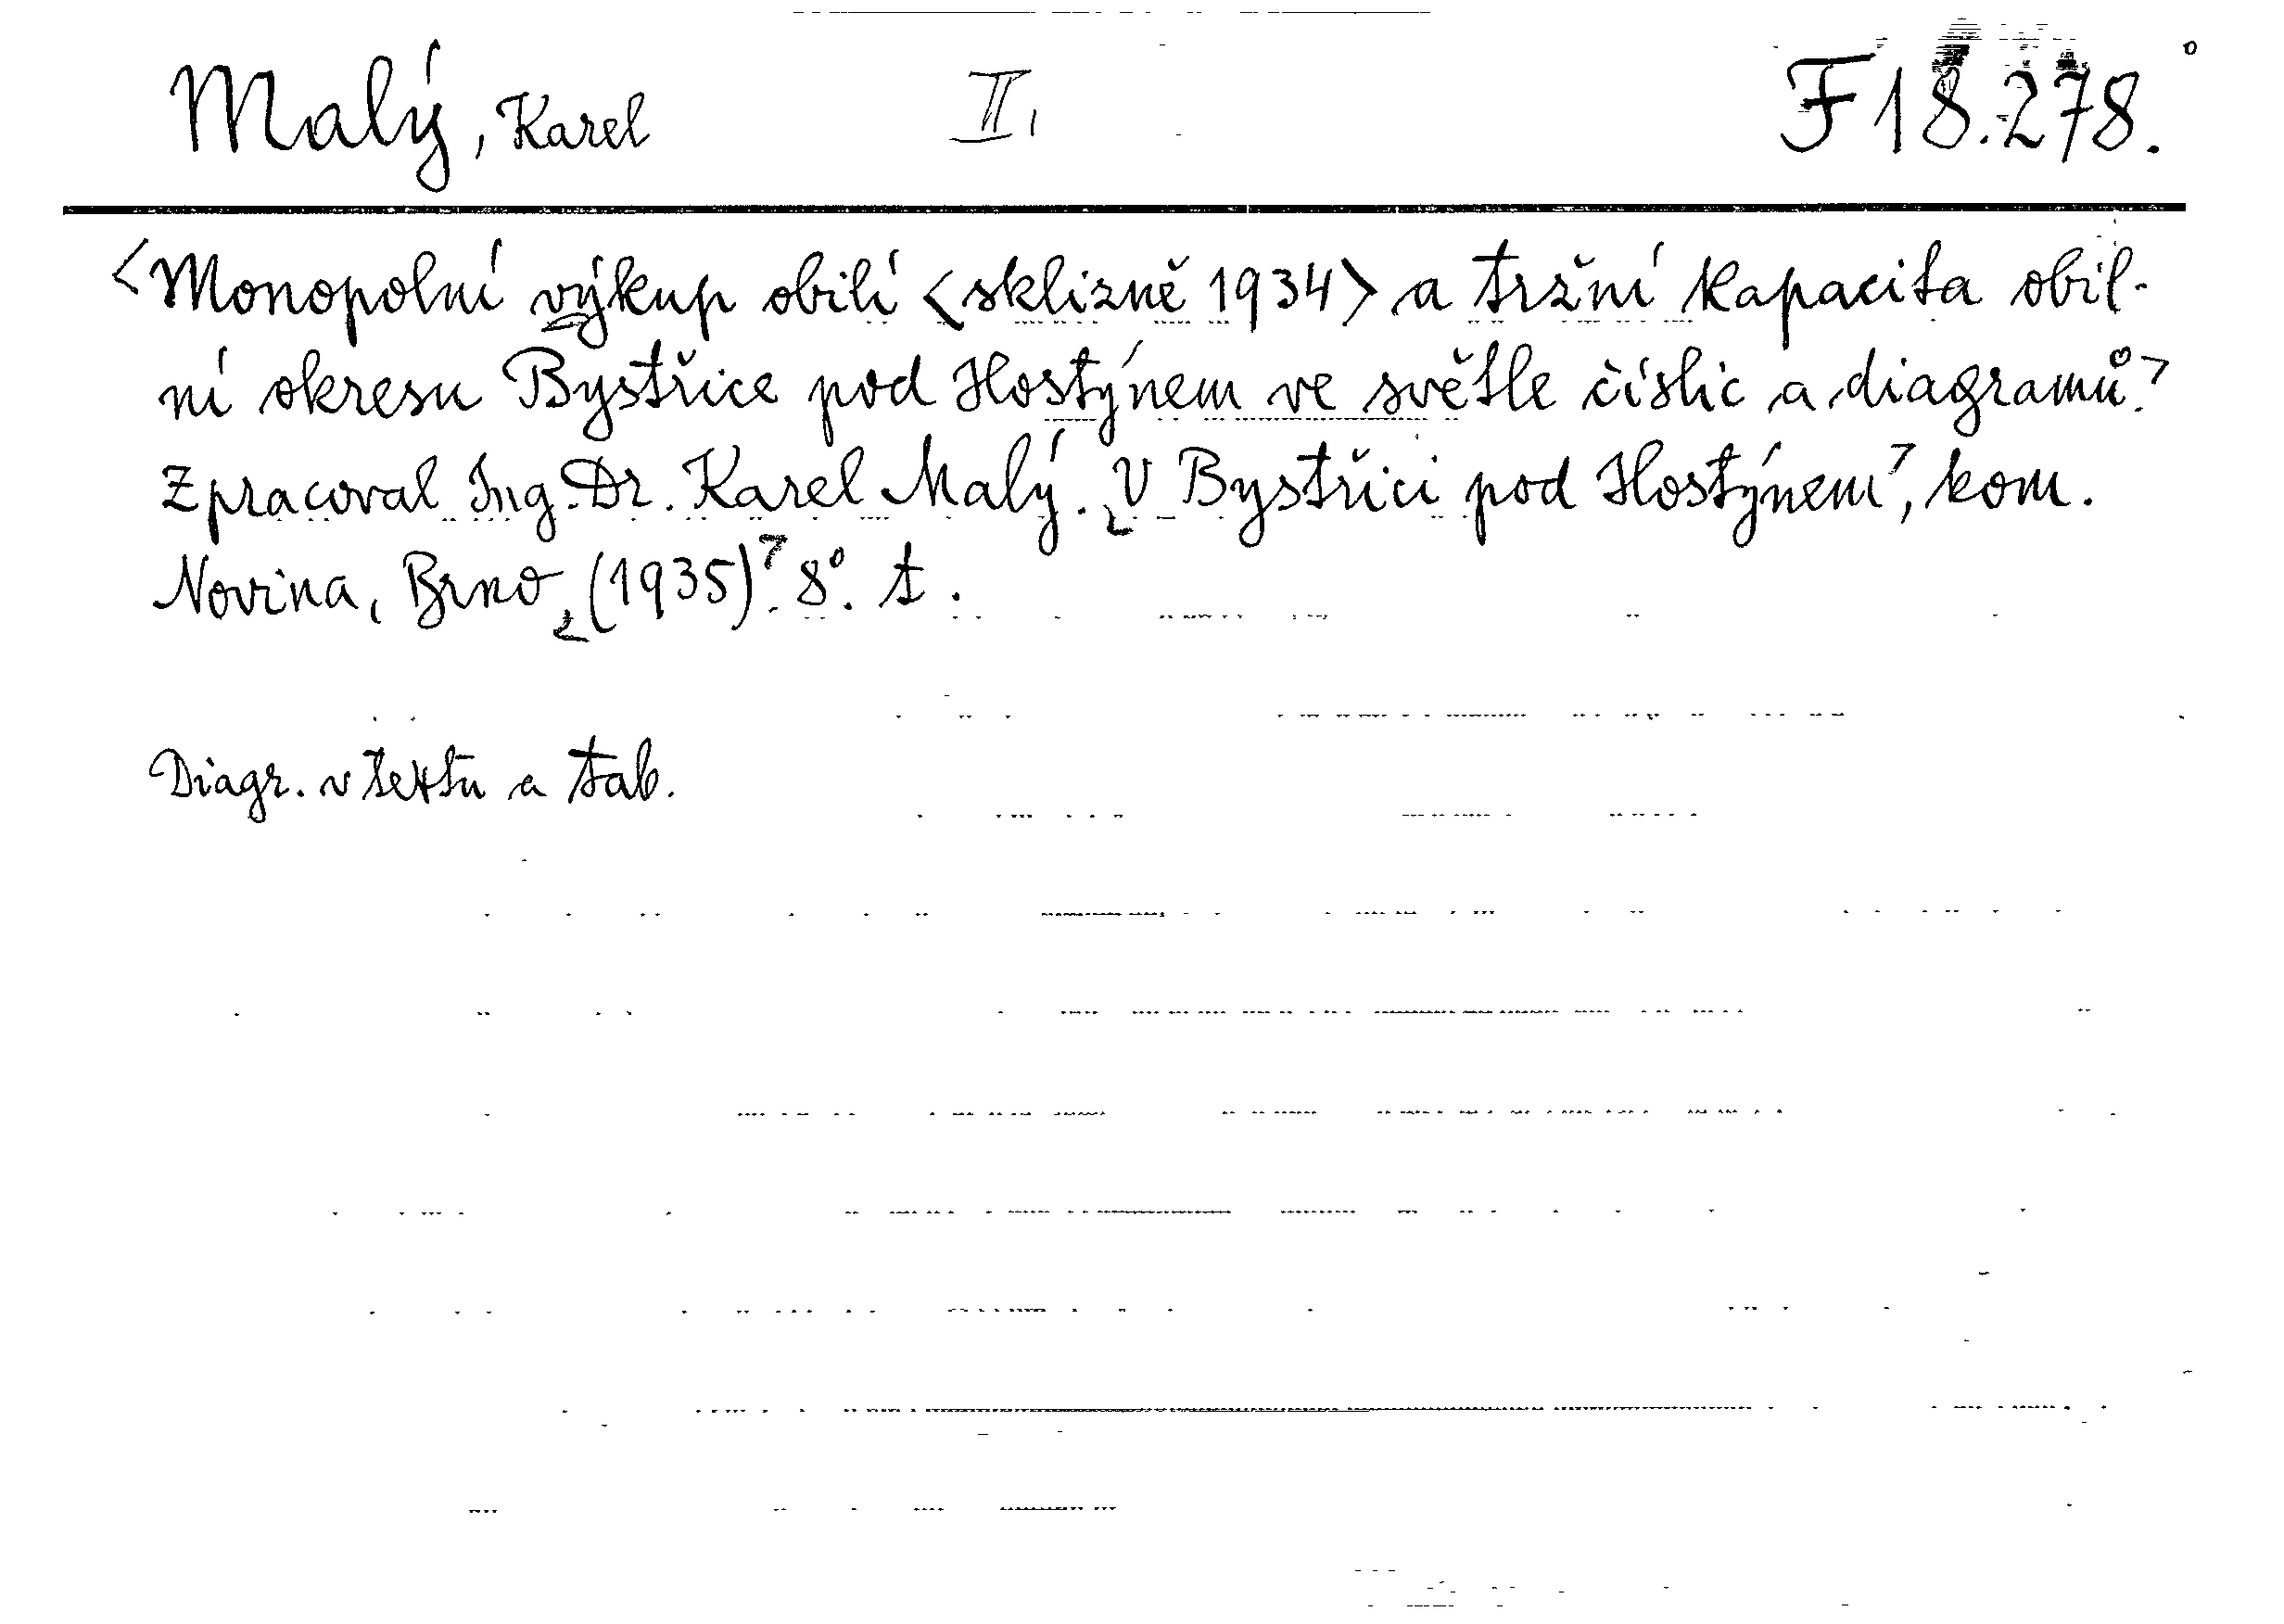 Malý, Karel II, F 18.278.
<Monopolní výkup obilí <sklizně 1934> a tržní kapacita obil-
ní okresu Bystřice pod Hostýnem ve světle číslic a diagramů.>
Zpracoval Ing. Dr. Karel Malý. <V Bystřici pod Hostýnem>, kom.
Novina, Brno <(1935)>. 8°. t.
Diagr. v textu a tab.